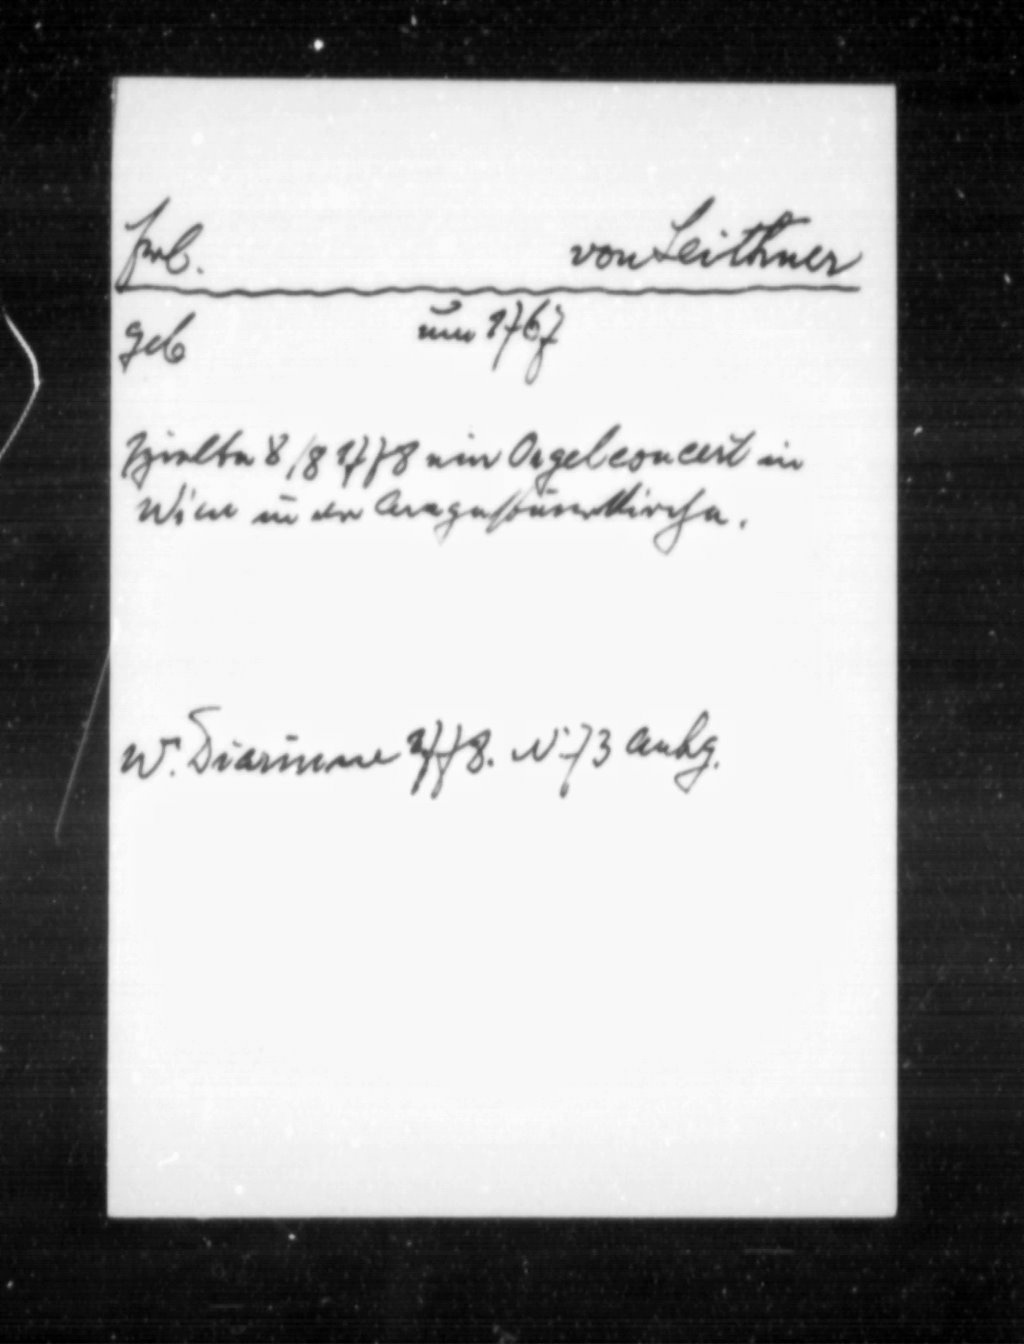 Frl. von Leithner
geb um 1767
spielte 8/8 1778 ein Orgelconcert in
Wien in der Augustinerkirche.
W. Diarium 1778. N. 73 Anhg.